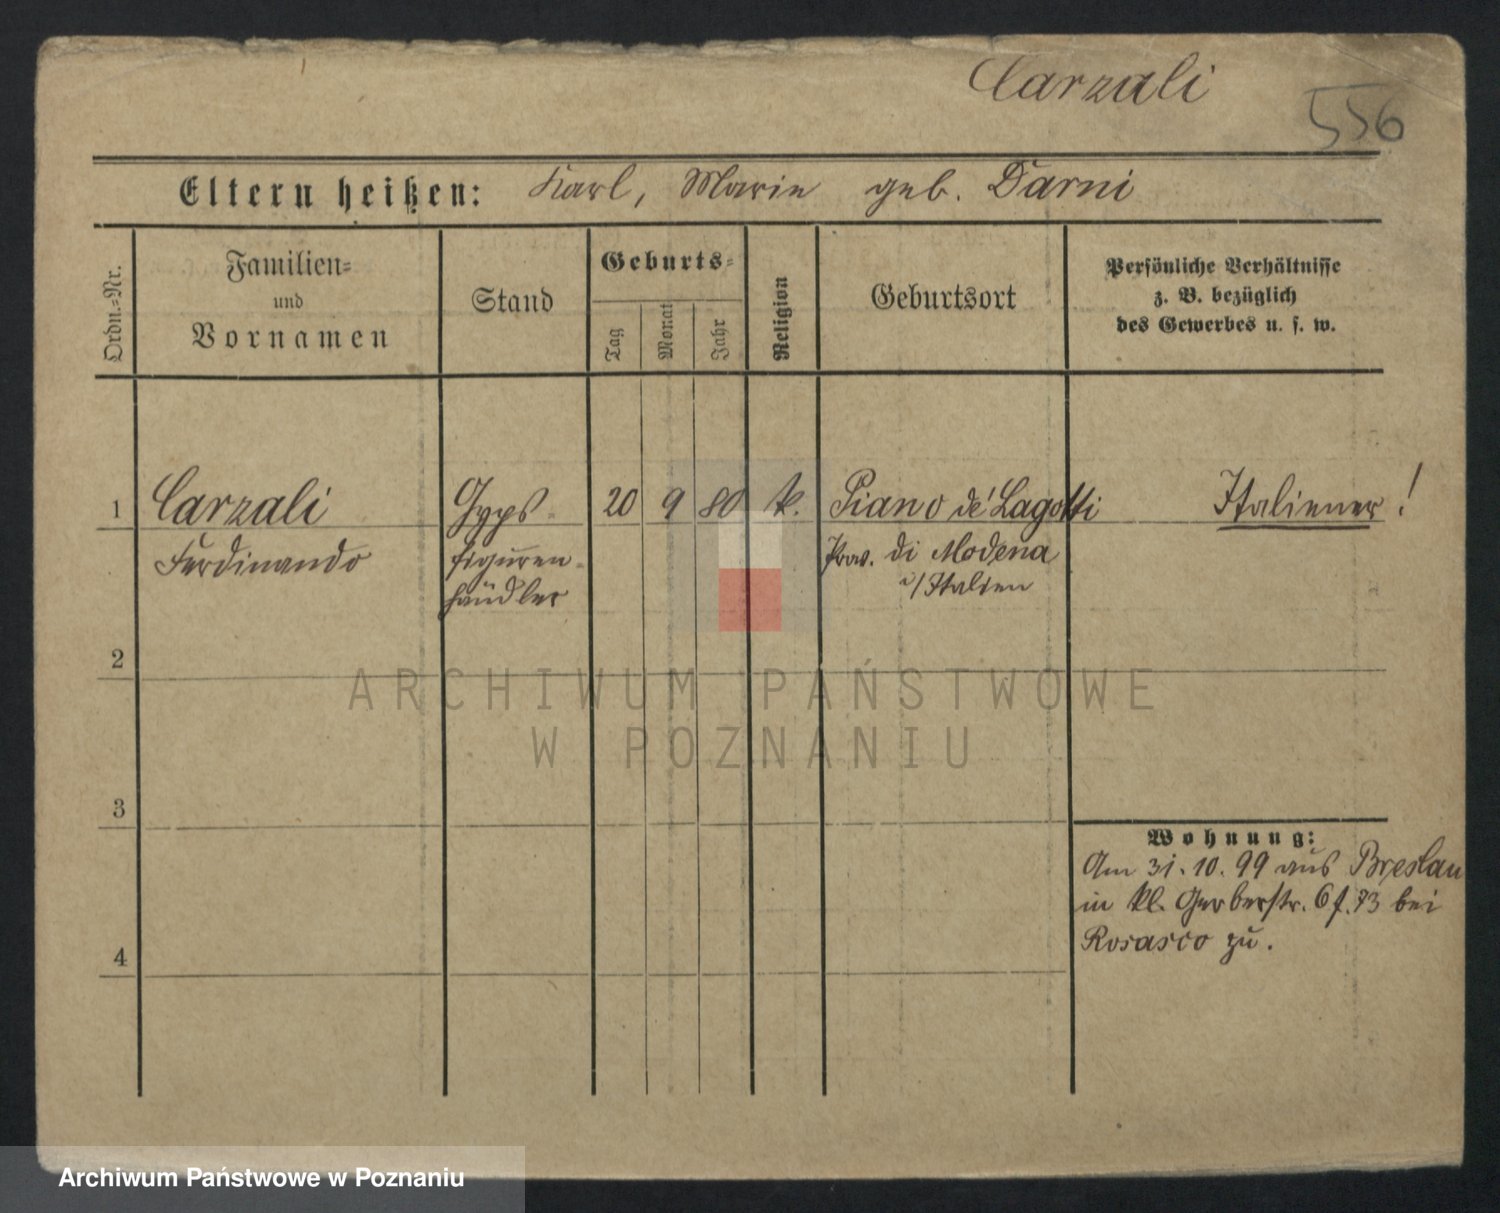 Carzali
556
Eltern heißen: Karl, Marie geb. Darni
Ordn.=Nr.
Familien=
und
Vornamen
Stand
Geburts=
Tag
Monat
Jahr
Religion
Geburtsort
Persönliche Verhältnisse
z. B. bezüglich
des Gewerbes u. s. w.
1 Carzali Gyps- 20 9 80 k. Piano de Lagotti Italiener!
Ferdinando figuren- Prov. di Modena
händler i/Italien
2
3
4
Wohnung:
Am 31.10.99 aus Breslau
in kl. Gerberstr. 6 f. 73 bei
Rosasco zu.
ARCHIWUM PAŃSTWOWE
W POZNANIU
Archiwum Państwowe w Poznaniu